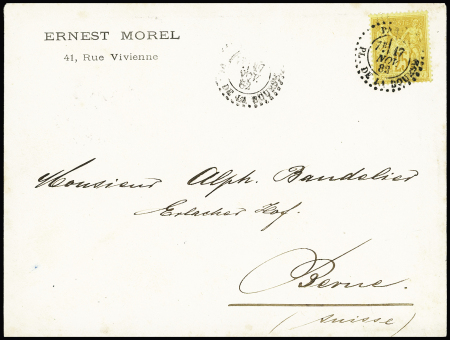 ERNEST MOREL
41, Rue Vivienne
PL. DE LA BOURSE
17
NOV.
82
PL. DE LA BOURSE
7E 17
NOV.
82
Monsieur Alph. Bandelier
Erlacher Hof.
Berne.
(Suisse)